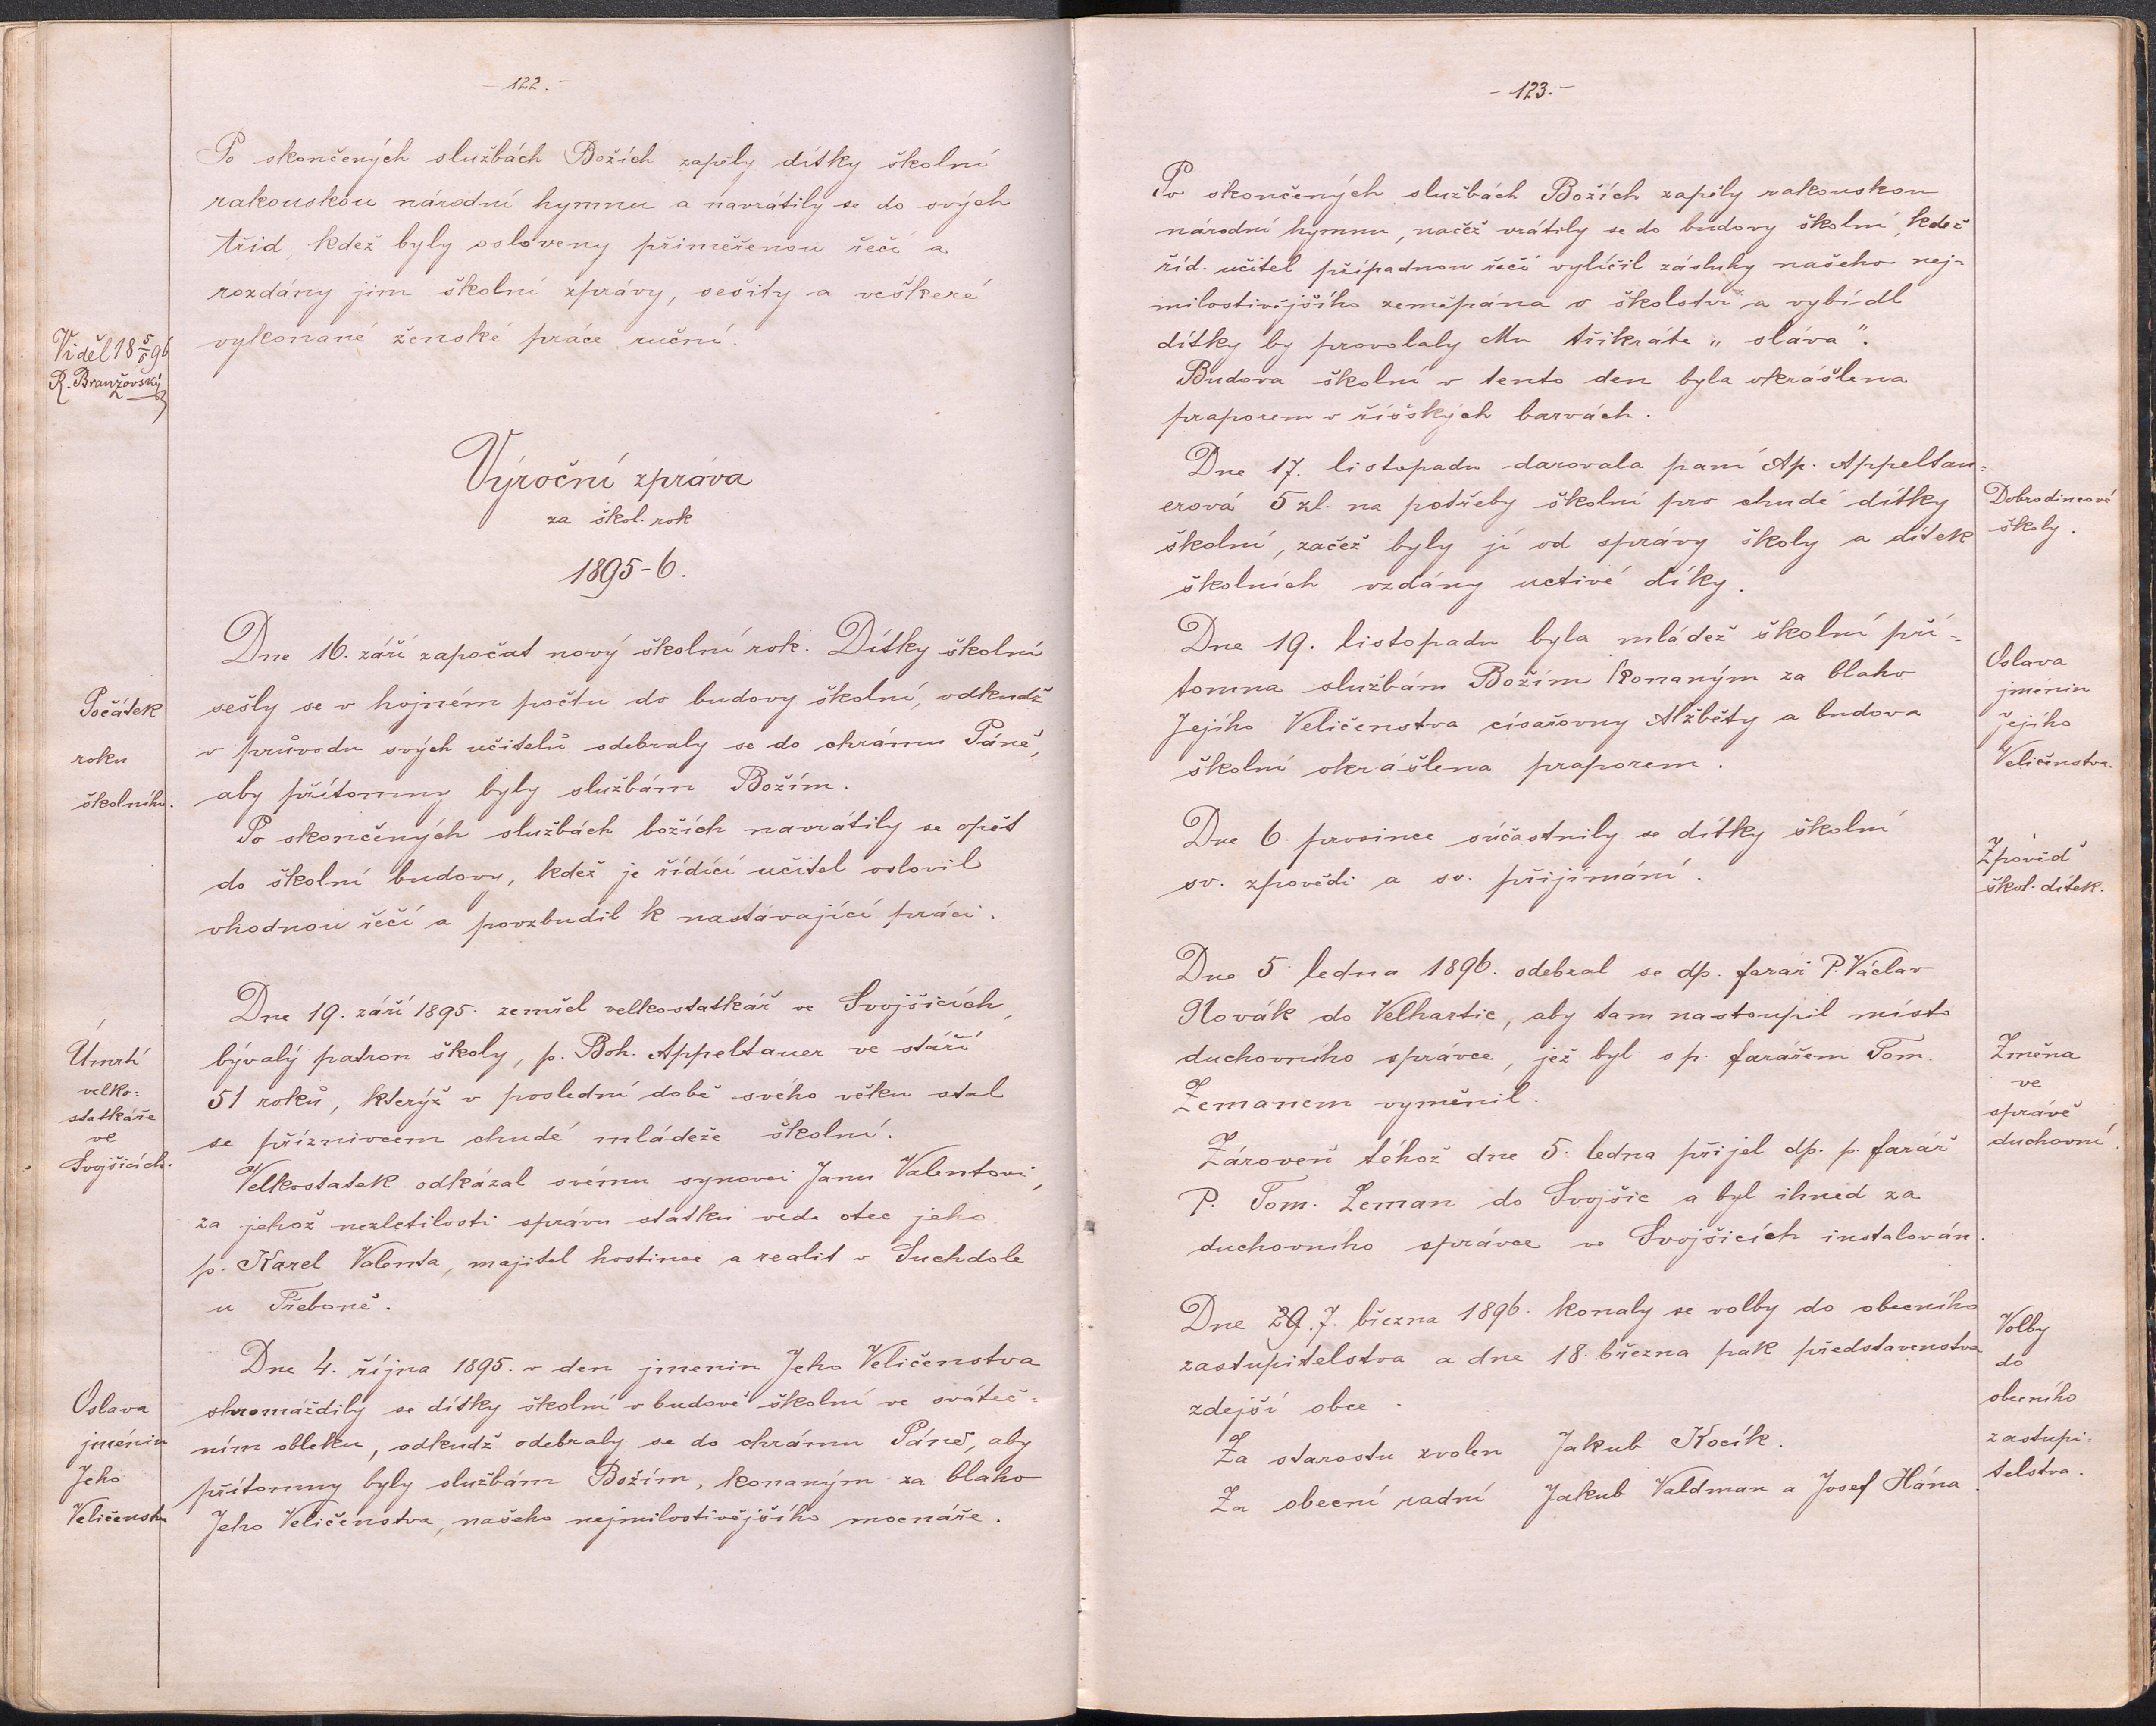 - 122. -
Po skončených službách Božích zapěly dítky školní
rakouskou národní hymnu a navrátily se do svých
tříd, kdež byly osloveny přiměřenou řečí a
rozdány jim školní zprávy, sešity a veškeré
vykonané ženské práce ruční.
Viděl 18 5/5 96
R. Branžovský
Výroční zpráva
za škol. rok
1895-6.
Počátek
roku
školního.
Dne 16. září započat nový školní rok. Dítky školní
sešly se v hojném počtu do budovy školní, odkudž
v průvodu svých učitelů odebraly se do chrámu Páně,
aby přítomny byly službám Božím.
Po skončených službách božích navrátily se opět
do školní budovy, kdež je řídící učitel oslovil
vhodnou řečí a povzbudil k nastávající práci.
Úmrtí
velko=
statkáře
ve
Svojšicích.
Dne 19. září 1895. zemřel velkostatkář ve Svojšicích,
bývalý patron školy, p. Boh. Appeltauer ve stáří
51 roků, kterýž v poslední době svého věku stal
se příznivcem chudé mládeže školní.
Velkostatek odkázal svému synovci Janu Valentovi,
za jehož nezletilosti správu statku vede otec jeho
p. Karel Valenta, majitel hostince a realit v Suchdole
u Třeboně.
Oslava
jmenin
Jeho
Veličenstva
Dne 4. října 1895. v den jmenin Jeho Veličenstva
shromáždily se dítky školní v budově školní ve sváteč=
ním obleku, odkudž odebraly se do chrámu Páně, aby
přítomny byly službám Božím, konaným za blaho
Jeho Veličenstva, našeho nejmilostivějšího mocnáře.
- 123. -
Po skončených službách Božích zapěly rakouskou
národní hymnu, načež vrátily se do budovy školní, kdež
říd. učitel případnou řečí vylíčil zásluhy našeho nej=
milostivějšího zeměpána o školství a vybídl
dítky by provolaly Mu třikráte „sláva".
Budova školní v tento den byla okrášlena
praporem v říšských barvách.
Dne 17. listopadu darovala paní Ap. Appeltau=
erová 5 zl. na potřeby školní pro chudé dítky
školní, začež byly jí od správy školy a dítek
školních vzdány uctivé díky.
Dobrodincové
školy.
Dne 19. listopadu byla mládež školní pří=
tomna službám Božím konaným za blaho
Jejího Veličenstva císařovny Alžběty a budova
školní okrášlena praporem.
Oslava
jmenin
Jejího
Veličenstva.
Dne 6. prosince súčastnily se dítky školní
sv. zpovědi a sv. přijímání.
Zpověď
škol. dítek.
Dne 5. ledna 1896. odebral se dp. farář P. Václav
Novák do Velhartic, aby tam nastoupil místo
duchovního správce, jež byl s p. farářem Tom.
Zemanem vyměnil.
Zároveň téhož dne 5. ledna přijel dp. p. farář
P. Tom. Zeman do Svojšic a byl ihned za
duchovního správce ve Svojšicích instalován.
Změna
ve
správě
duchovní.
Dne 29. 7. března 1896. konaly se volby do obecního
zastupitelstva a dne 18. března pak představenstva
zdejší obce.
Za starostu zvolen Jakub Kocík.
Za obecní radní Jakub Valdman a Josef Hána
Volby
do
obecního
zastupi=
telstva.